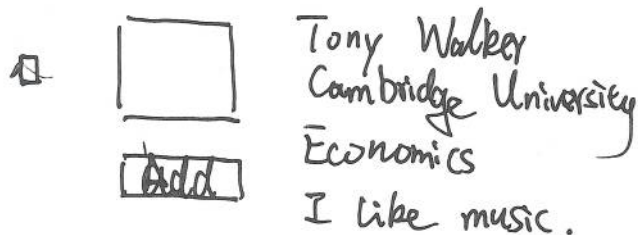 Tony Walker
Cambridge University
Economics
Add
I like music.